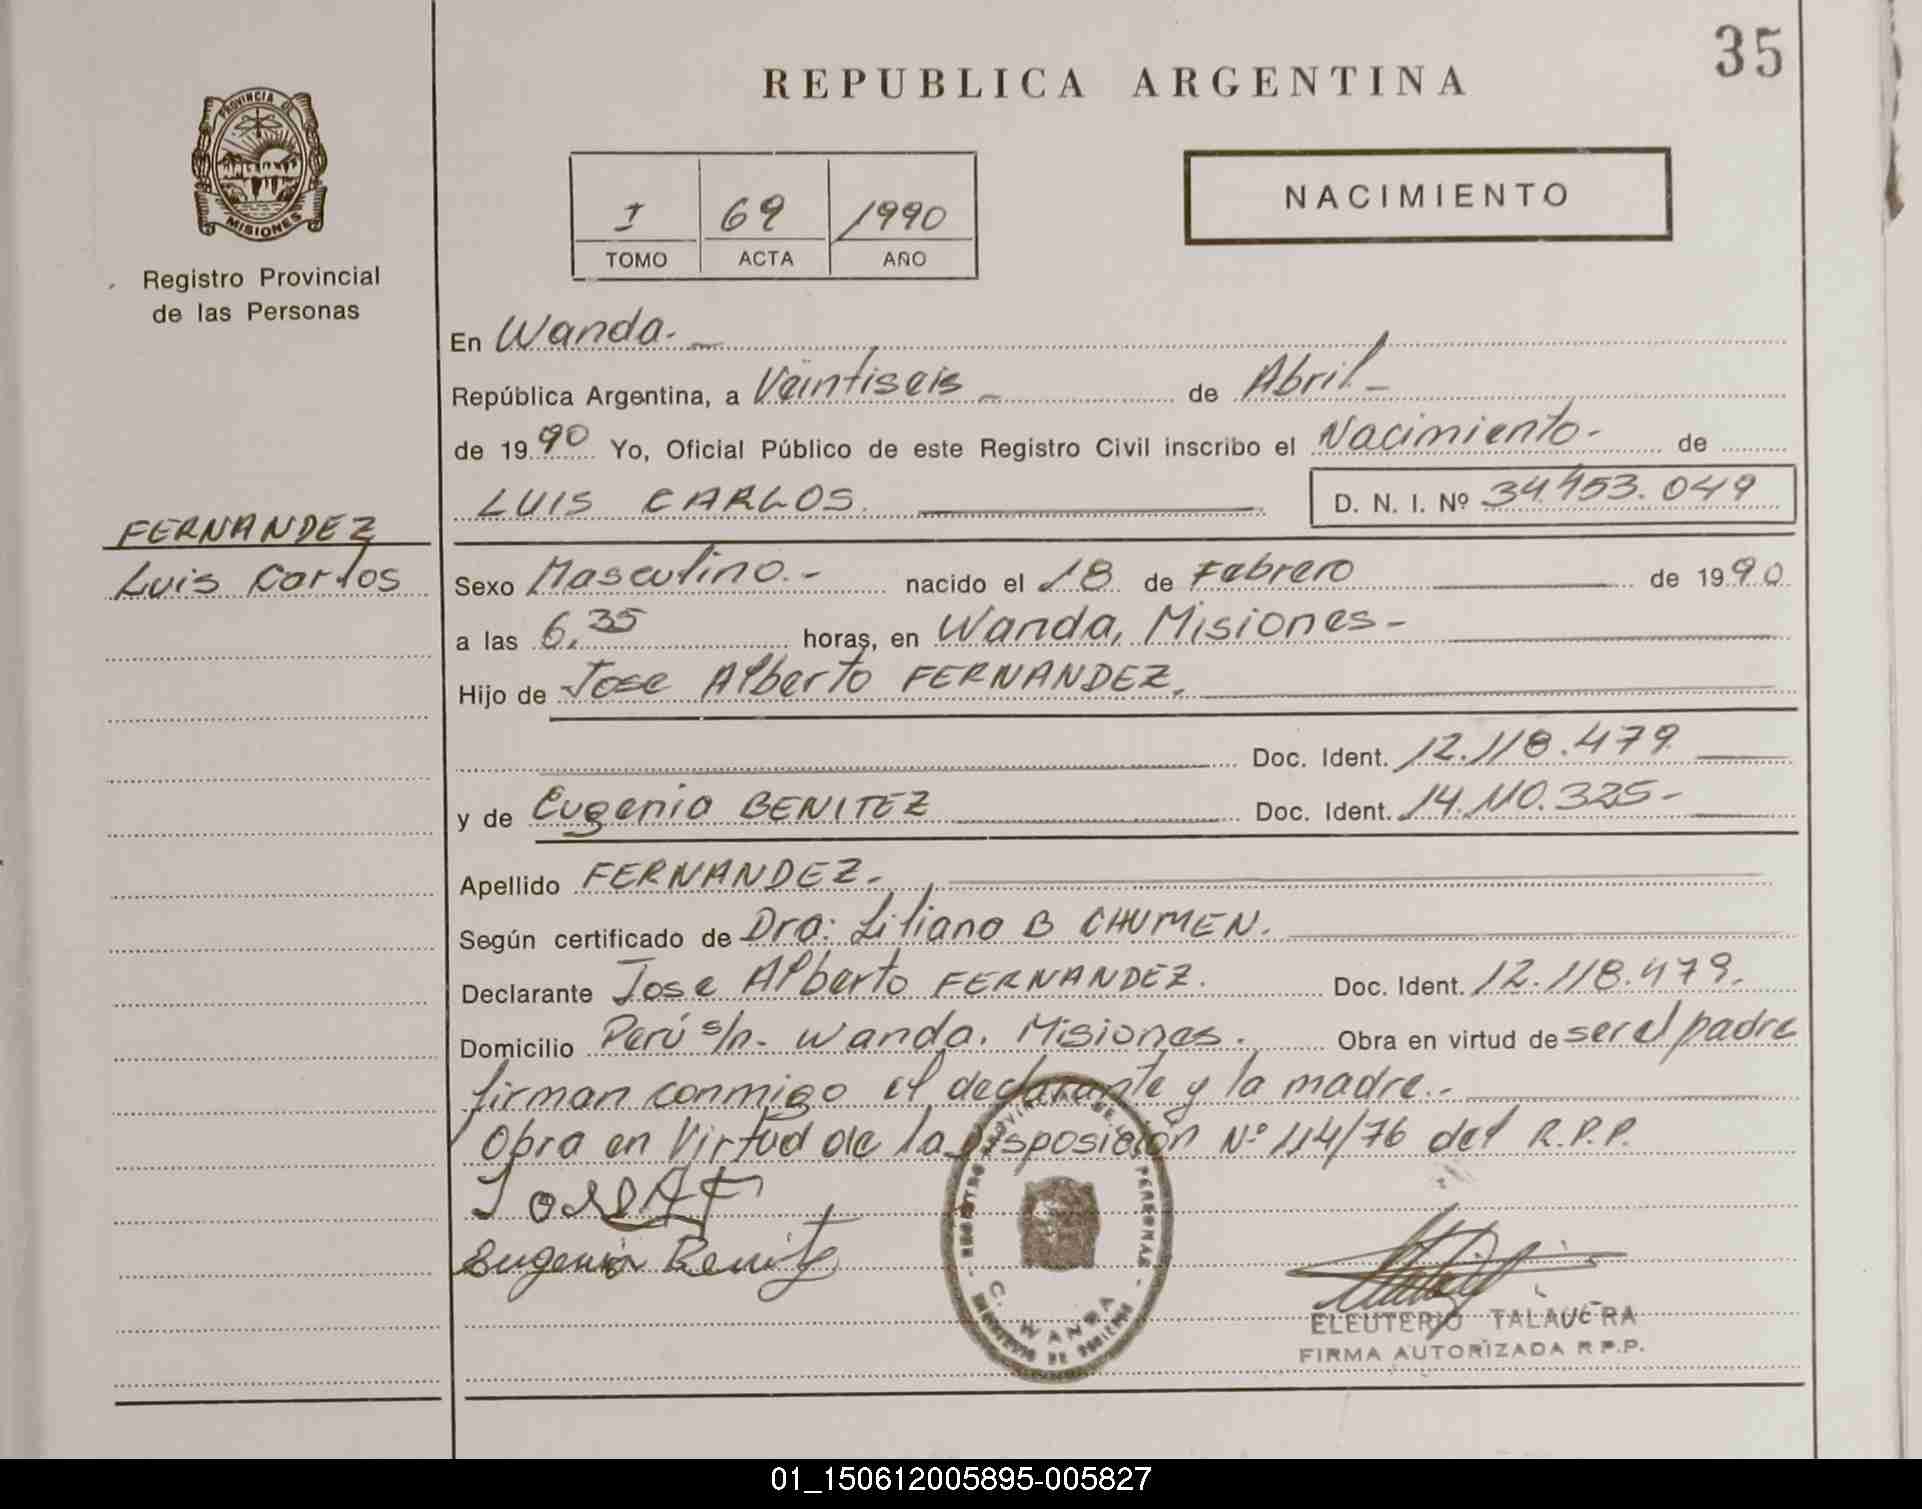 35
REPUBLICA ARGENTINA
PROVINCIA DE
MISIONES
Registro Provincial
de las Personas
I 69 1990
TOMO ACTA AÑO
NACIMIENTO
En Wanda.-
República Argentina, a Veintiseis - de Abril -
de 1990 Yo, Oficial Público de este Registro Civil inscribo el Nacimiento.- de
LUIS CARLOS. D. N. I. Nº 34.453.049
FERNANDEZ
Luis Carlos
Sexo Masculino.- nacido el 18 de Febrero de 1990
a las 6,35 horas, en Wanda, Misiones -
Hijo de Jose Alberto FERNANDEZ.
Doc. Ident. 12.118.479
y de Eugenia BENITEZ Doc. Ident. 14.110.325-
Apellido FERNANDEZ.
Según certificado de Dra: Liliana B CHUMEN.
Declarante Jose Alberto FERNANDEZ. Doc. Ident. 12.118.479.
Domicilio Perú s/n. Wanda. Misiones. Obra en virtud de ser el padre
firman conmigo el declarante y la madre.-
Obra en Virtud de la Disposición Nº 114/76 del R.P.P.
Eugenia Benitez
REGISTRO PROVINCIAL DE LAS PERSONAS
C. WANDA
ELEUTERIO TALAVERA
FIRMA AUTORIZADA R.P.P.
01_150612005895-005827